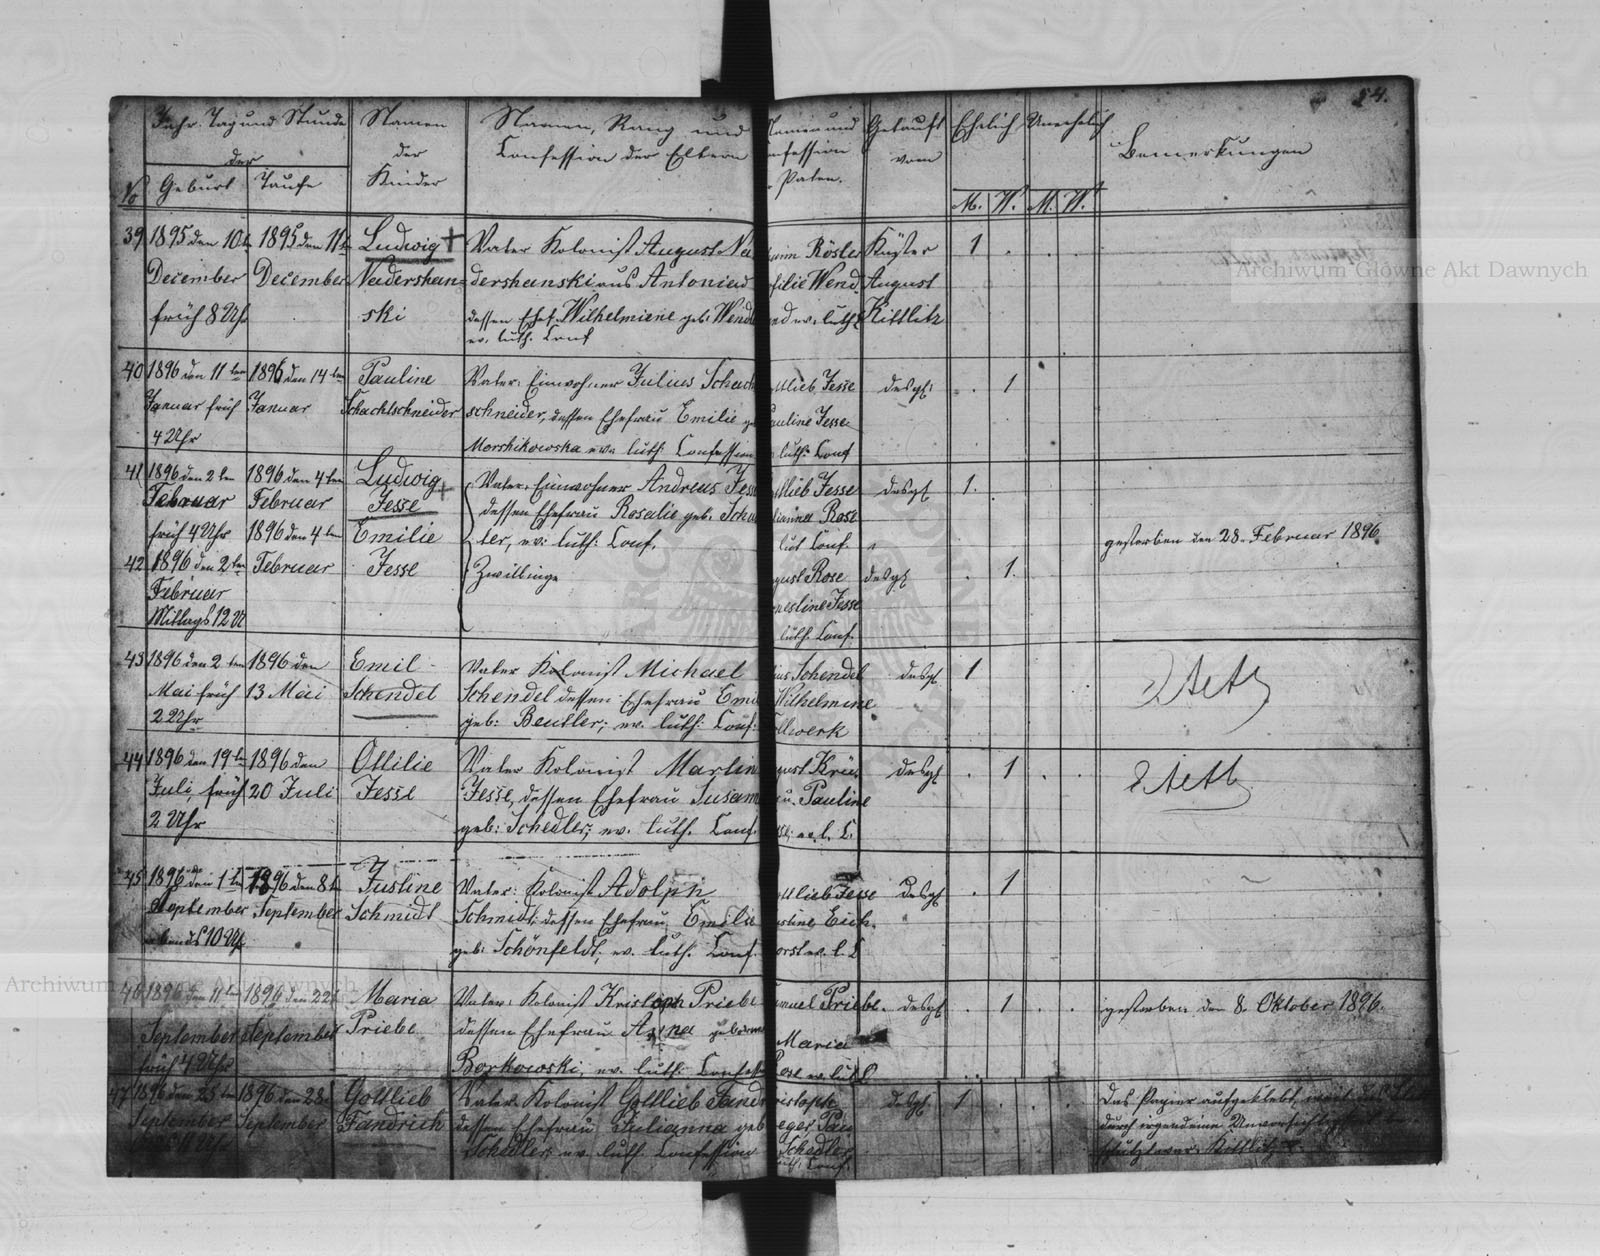 54.
Jahr. Tag und Stunde
der
No Geburt Taufe
Namen
der
Kinder
Namen, Rang und
Confession der Eltern
Namen und
nfession
Paten.
Getauft
vom
Ehelich Unehelich
M. W. M. W.
Bemerkungen
39 1895 den 10ten
December
früh 8 Uhr
1895 den 11ten
December
Ludwig +
Nadershan=
ski
Vater Kolonist August Na
dershanski aus Antonien
dessen Ehef. Wilhelmiene geb: Wend
ev. luth. Conf
Rösler
Wend
ev. luth.
Küster
August
Kittlitz
1
40 1896 den 11ten
Januar früh
4 Uhr
1896 den 14ten
Januar
Pauline
Schachtschneider
Vater: Einwohner Julius Schach
schneider, dessen Ehefrau Emilie ge
Morshikowska ev: luth: Confession
ttlieb Jesse
auline Jesse
luth: Conf
desgl:
1
41 1896 den 2ten
Februar
früh 4 Uhr
1896 den 4ten
Februar
Ludwig +
Jesse
Vater: Einwohner Andreas Jess
dessen Ehefrau Rosalie geb: Scha
ler, ev: luth: Conf.
Zwillinge
ttlieb Jesse
lianna Rose
lut Conf.
desgl
1.
gestorben den 28. Februar 1896
42 1896 den 2ten
Februar
Mittags 12 U
1896 den 4ten
Februar
Emilie
Jesse
gust Rose
nestine Jesse
luth. Conf.
desgl
1.
43 1896 den 2ten
Mai früh
2 Uhr
1896 den
13 Mai
Emil
Schendel
Vater Kolonist Michael
Schendel dessen Ehefrau Emil
geb: Beutler; ev. luth: Conf:
ius Schendel
Wilhelmine
llwerk
desgl
1
44 1896 den 19ten
Juli, früh
2 Uhr
1896 den
20 Juli
Ottilie
Jesse
Vater Kolonist Martin
Jesse, dessen Ehefrau Susann
geb: Schedler; ev. luth. Conf.
gust Krü
u. Pauline
ev. l. C.
desgl
1
45 1896 den 1ten
September
abends 10 Uh
1896 den 8ten
September
Justine
Schmidt
Vater: Kolonist Adolph
Schmidt: dessen Ehefrau Emilie
geb: Schönfeldt; ev. luth. Conf.
ttlieb Jesse
stine Eich
orst ev. l. C
Desgl
1
46 1896 den 11ten
September
früh 4 Uhr
1896 den 22t
September
Maria
Priebe
Vater: Kolonist Kristoph Priebe
dessen Ehefrau Anna geboren
Borkowski; ev. luth: Confess
muel Priebe.
Maria
ev. luth C
desgl
1
gestorben den 8. Oktober 1896.
47 1896 den 25ten
September
1896 den 28
September
Gottlieb
Fandrich
Vater Kolonist Gottlieb Fand
dessen Ehefrau Julianna geb
Schedler; ev. luth. Confession
ristoph
eger
Schedler
luth. Conf.
desgl.
1
Das Papier aufgeklebt, weil
durch irgendeine Unvorsichtig
war: Kittlitz
Archiwum Główne Akt Dawnych
Archiwum Główne Akt Dawnych